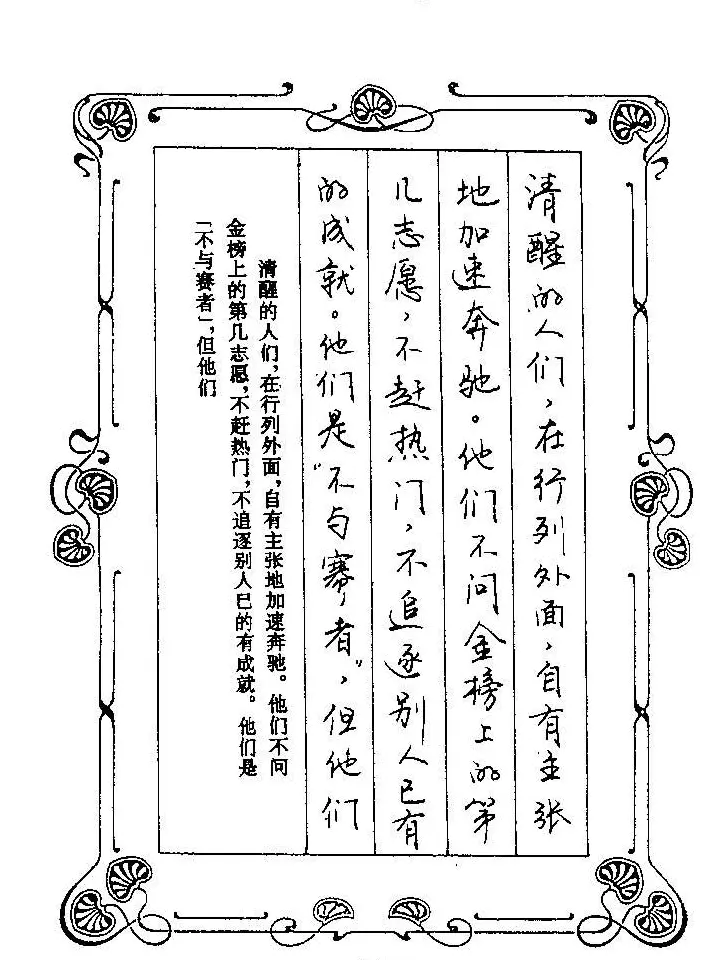 清醒的人们，在行列外面，自有主张
地加速奔驰。他们不问金榜上的第
几志愿，不赶热门，不追逐别人已有
的成就。他们是“不与赛者”，但他们
清醒的人们，在行列外面，自有主张地加速奔驰。他们不问
金榜上的第几志愿，不赶热门，不追逐别人已的有成就。他们是
「不与赛者」，但他们